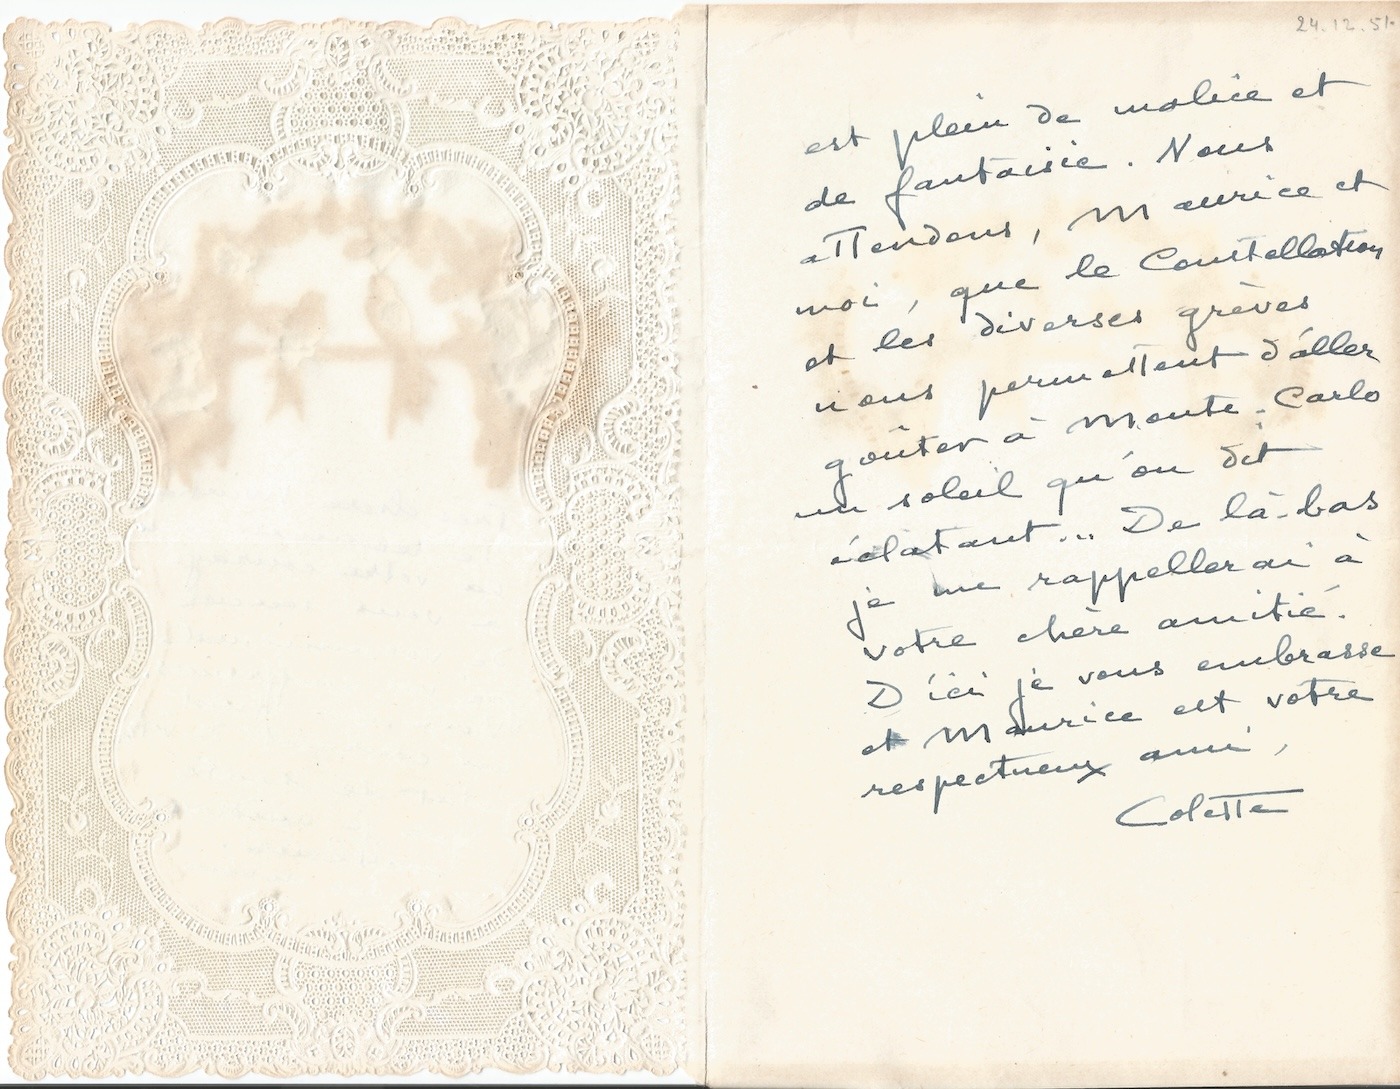 24.12.51.
est plein de malice et
de fantaisie. Nous
attendons, Maurice et
moi, que le Constellation
et les diverses grèves
nous permettent d'aller
goûter à Monte-Carlo
un soleil qu'on dit
éclatant... De là-bas
je me rappellerai à
votre chère amitié.
D'ici je vous embrasse
et Maurice est votre
respectueux ami,
Colette